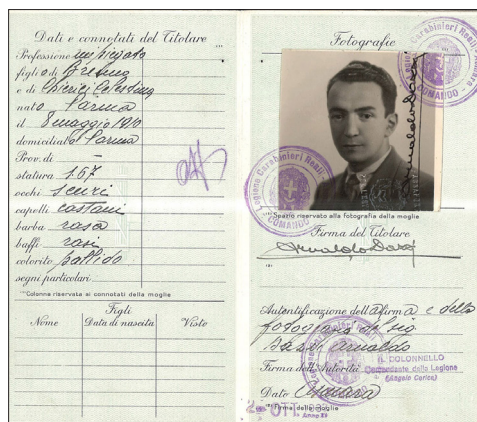 Dati e connotati del Titolare
Professione impiegato
figlio di
e di Chierici Celestina
nato Parma
il 8 maggio 1910
domiciliato Parma
Prov. di —
statura 1.67
occhi scuri
capelli castani
barba rasa
baffi rasi
colorito pallido
segni particolari
Colonne riservate ai connotati della moglie
Figli
Nome Data di nascita Visto
Fotografie
Legione Carabinieri Reali
COMANDO
Arnaldo
Legione Carabinieri Reali
COMANDO
Spazio riservato alla fotografia della moglie
Firma del Titolare
Arnaldo
Autentificazione della firma e della
fotografia del sig
Arnaldo
IL COLONNELLO
Firma dell'Autorità Comandante della Legione
Data
Firma della moglie
OTT.